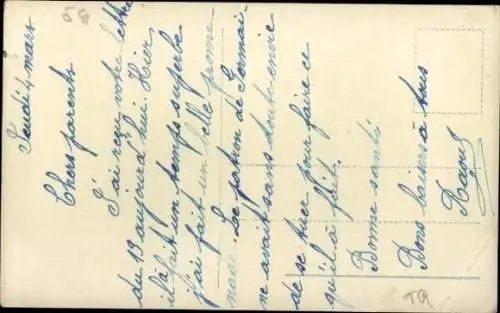 Jeudi 4 mars
Chers parents
J'ai reçu votre lettre
du 13 aujourd'hui. Hier
il a fait un temps superbe
j'ai fait un belle prome-
nade. Le patim de Germai-
ne avait sans toute envie
de se tuer pour faire ce
qu'il à fait.
Bonne santé
Bons baisers à tous